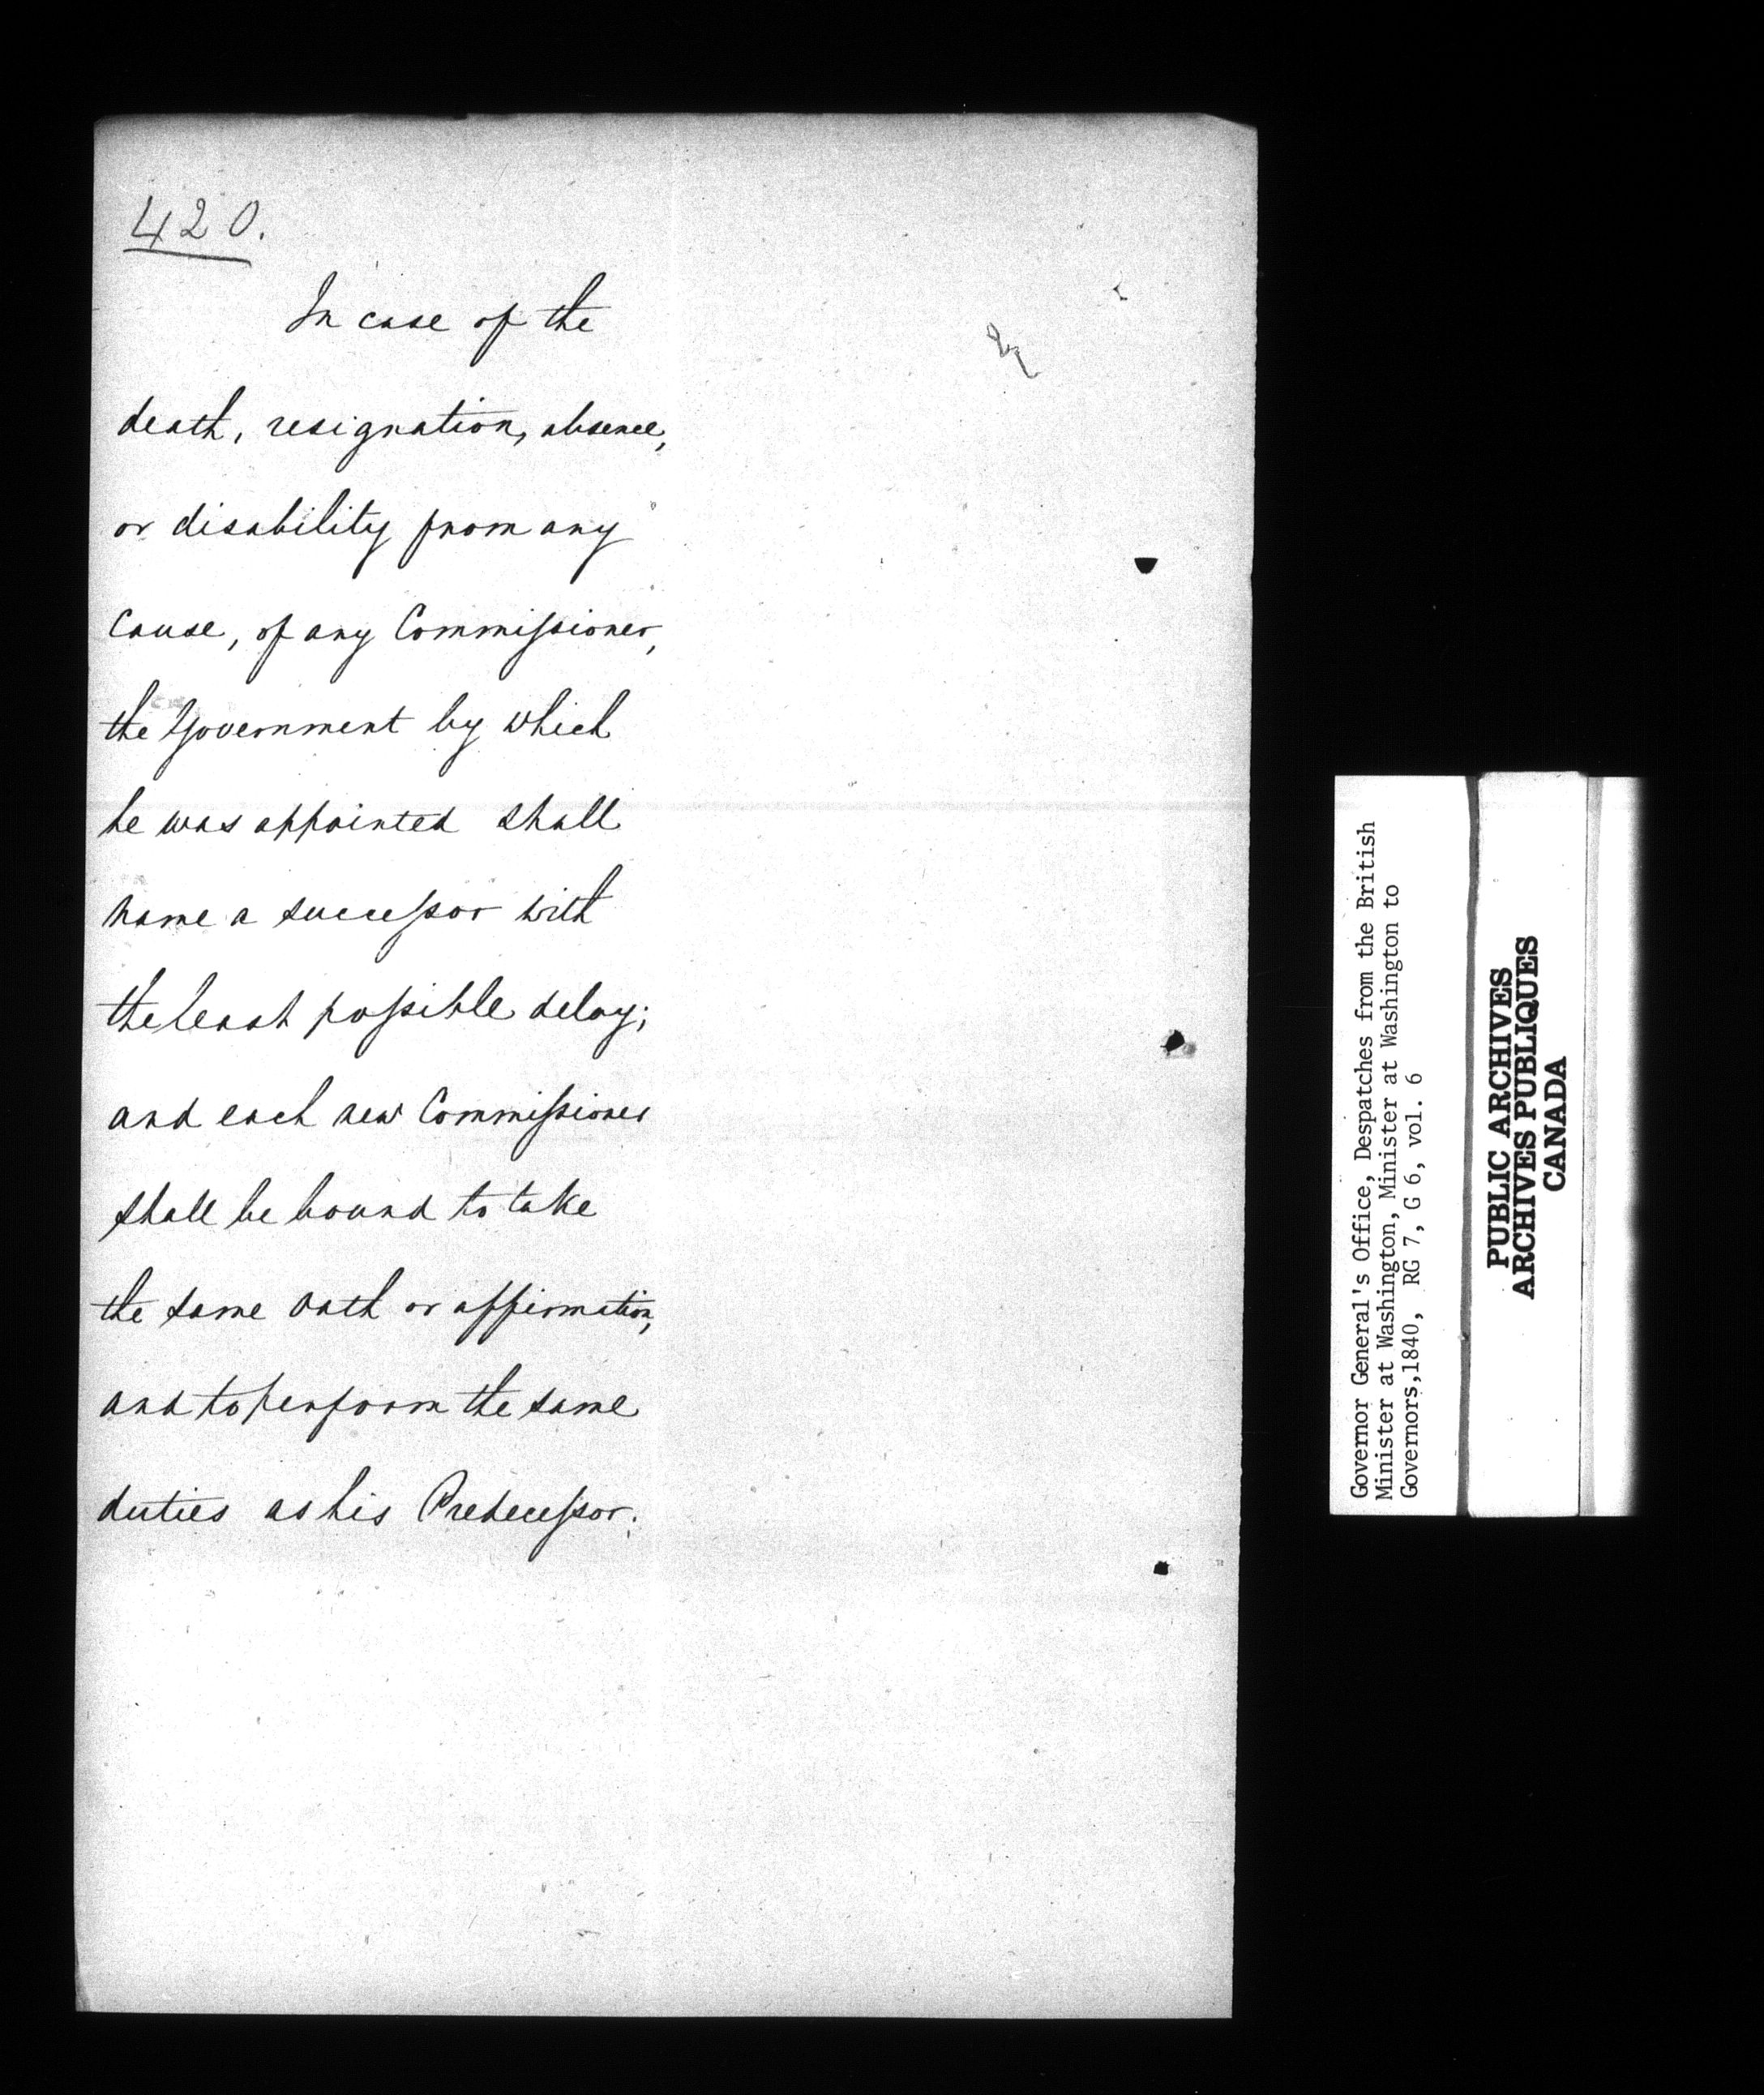 420.
In case of the
death, resignation, absence,
or disability from any
Cause, of any Commissioner,
the Government by which
he was appointed shall
name a successor with
the least possible delay;
and each new Commissioner
shall be bound to take
the same oath or affirmation,
and to perform the same
duties as his Predecessor.
Governor General's Office, Despatches from the British
Minister at Washington, Minister at Washington to
Governors,1840, RG 7, G 6, vol. 6
PUBLIC ARCHIVES
ARCHIVES PUBLIQUES
CANADA